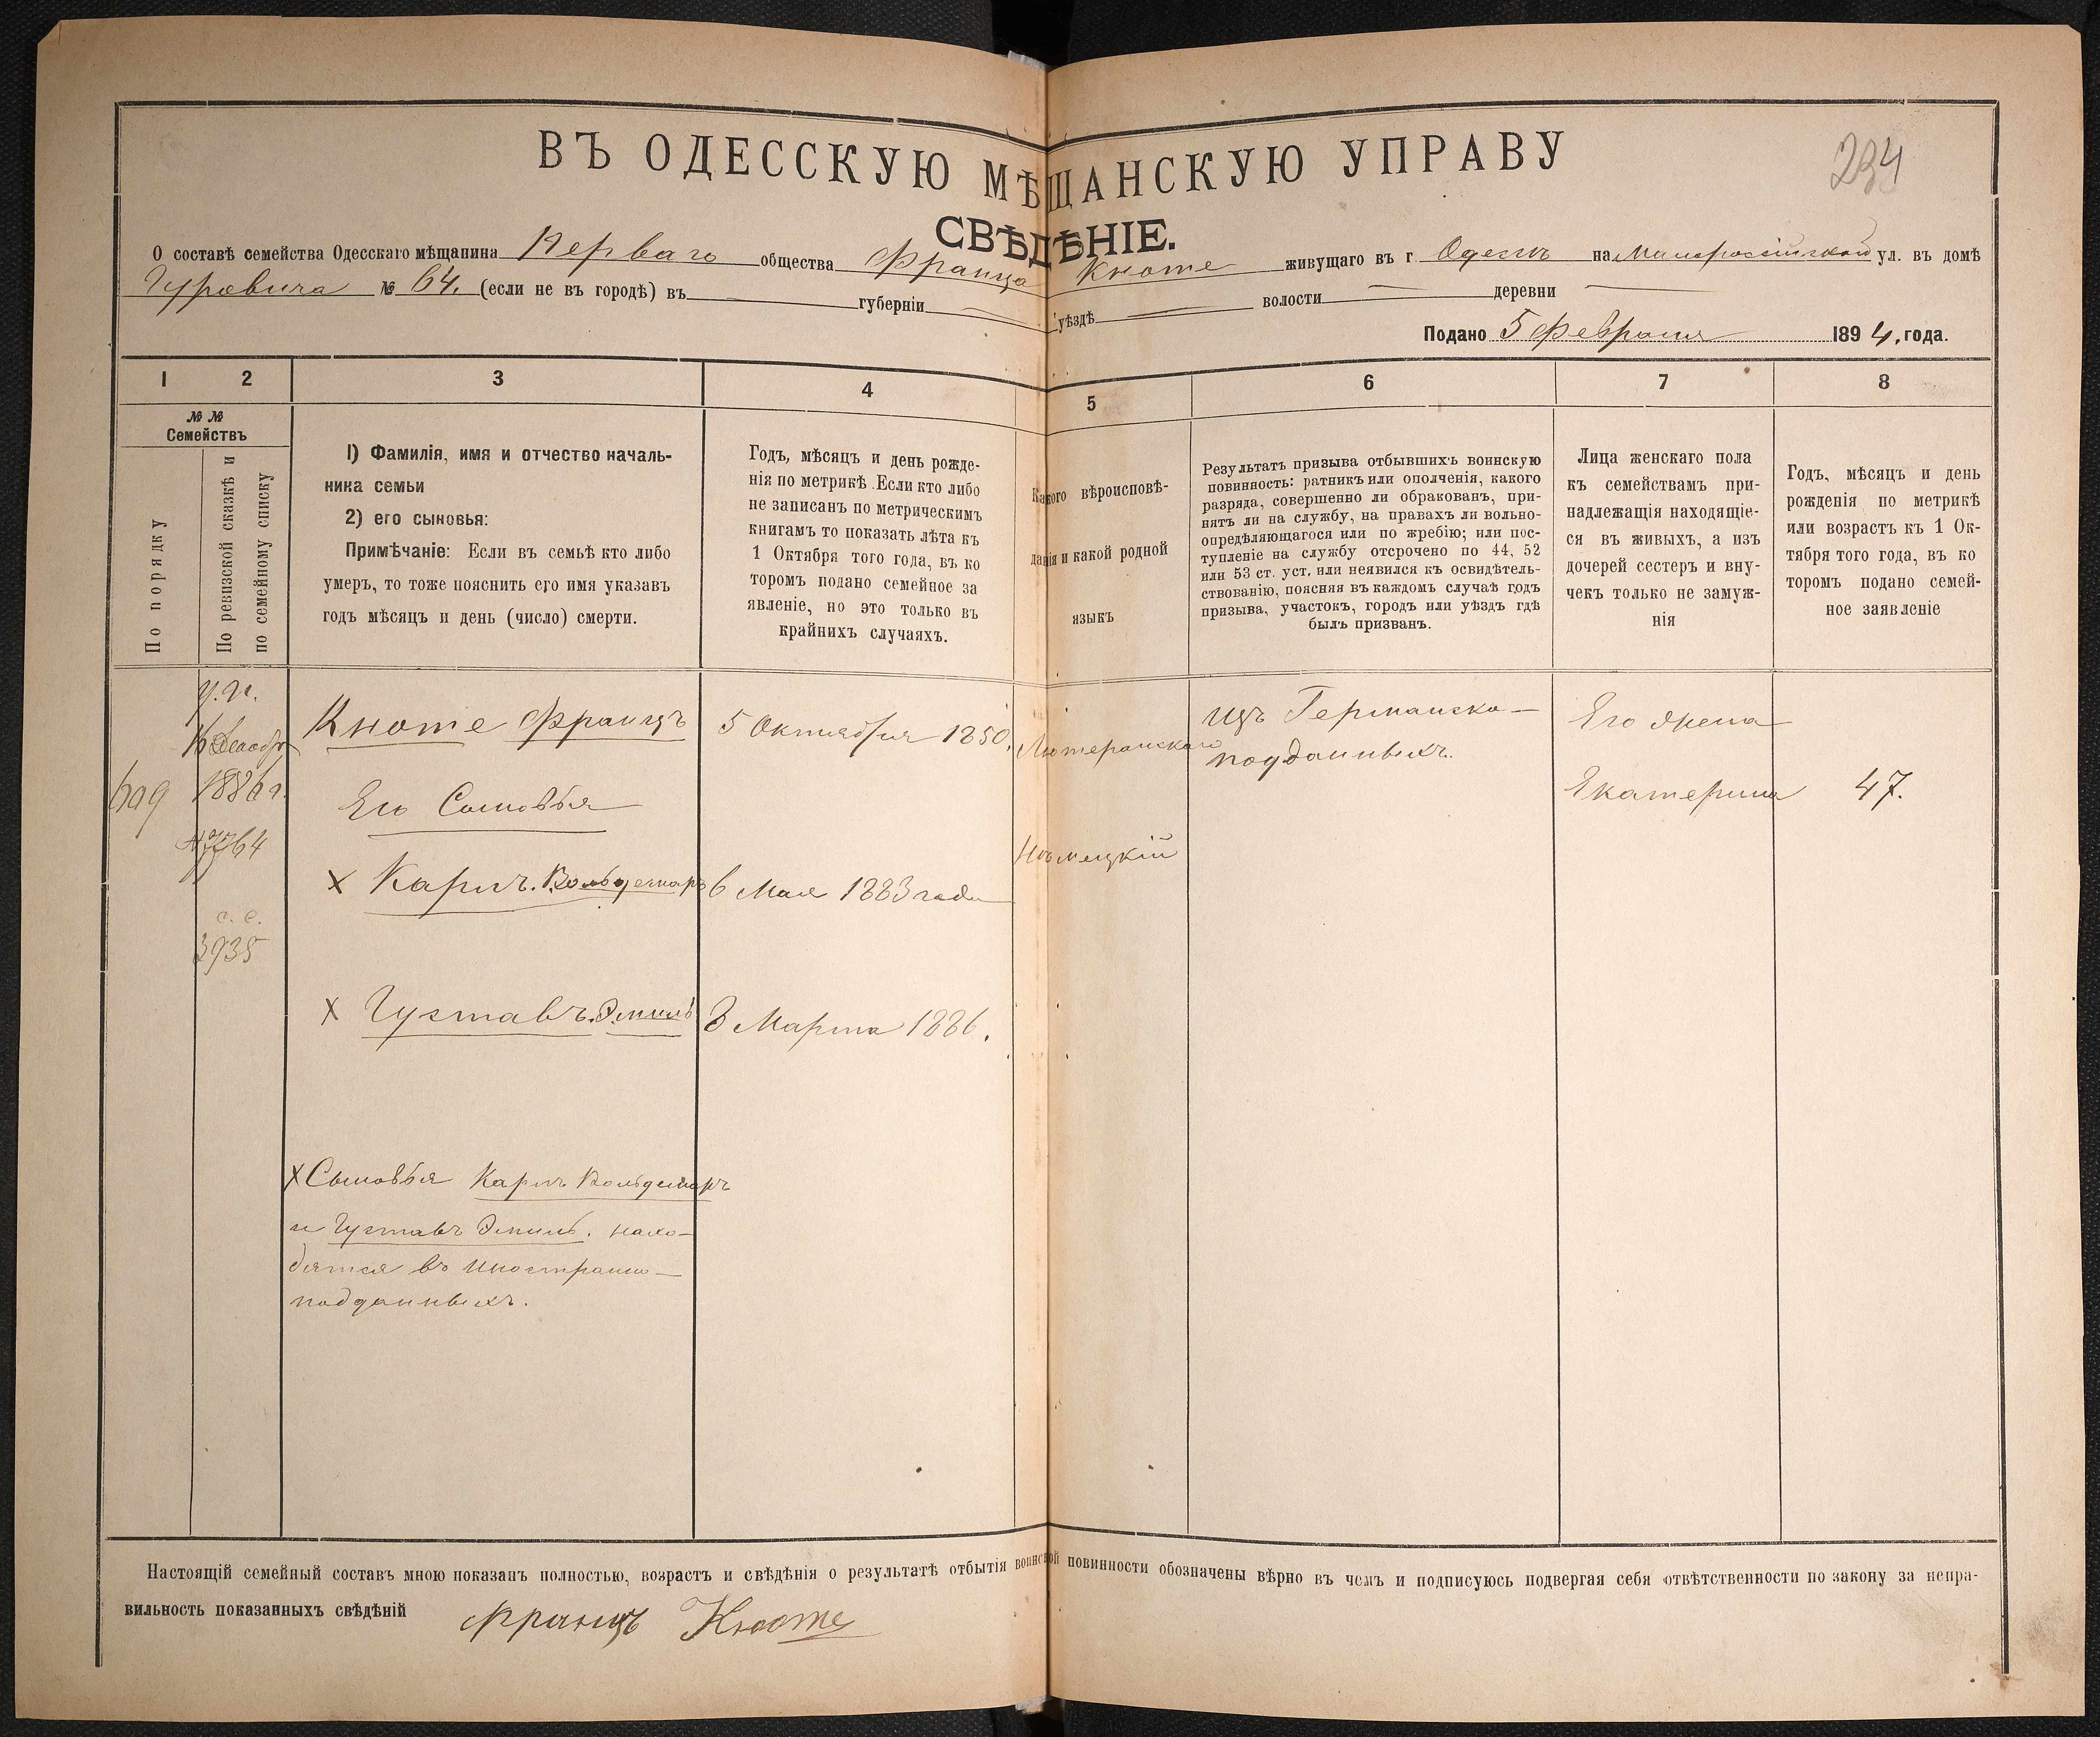 ВЪ ОДЕССКУЮ МѢЩАНСКУЮ УПРАВУ
234
СВѢДѢНІЕ.
О составѣ семейства Одесскаго мѣщанина Перваго общества Франца Кноте живущаго въ г. Одессѣ на Малороссійской ул. въ домѣ
Гуровича № 64. (если не въ городѣ) въ губерніи уѣздѣ волости деревни
Подано 5 Февраля 1894, года.
1 2 3 4 5 6 7 8
№ №
Семействъ
По порядку
По ревизской сказкѣ и
по семейному списку
1) Фамилія, имя и отчество началь-
ника семьи
2) его сыновья:
Примѣчаніе: Если въ семьѣ кто либо
умеръ, то тоже пояснить его имя указавъ
годъ мѣсяцъ и день (число) смерти.
Годъ, мѣсяцъ и день рожде-
нія по метрикѣ. Если кто либо
не записанъ по метрическимъ
книгамъ то показать лѣта къ
1 Октября того года, въ ко
торомъ подано семейное за
явленіе, но это только въ
крайнихъ случаяхъ.
Какого вѣроисповѣ-
данія и какой родной
языкъ
Результатъ призыва отбывшихъ воинскую
повинность: ратникъ или ополченія, какого
разряда, совершенно ли обракованъ, при-
нятъ ли на службу, на правахъ ли вольно-
опредѣляющагося или по жребію; или пос-
тупленіе на службу отсрочено по 44, 52
или 53 ст. уст. или неявился къ освидѣтель-
ствованію, поясняя въ каждомъ случаѣ годъ
призыва, участокъ, городъ или уѣздъ гдѣ
былъ призванъ.
Лица женскаго пола
къ семействамъ при-
надлежащія находящіе-
ся въ живыхъ, а изъ
дочерей сестеръ и вну-
чекъ только не замуж-
нія
Годъ, мѣсяцъ и день
рожденія по метрикѣ
или возрастъ къ 1 Ок-
тября того года, въ ко
торомъ подано семей-
ное заявленіе
у. К.
609
1886 г.
7764
с. с.
3935
Кноте Францъ
5 Октября 1850.
Лютеранскаго
Изъ Германско-
подданныхъ.
Его жена
Его Сыновья
Екатерина
47.
Нѣмецкій
х Карлъ. Вольдемаръ
6 Мая 1883 года
х Густавъ. Эмиль
8 Марта 1886.
х Сыновья Карлъ Вольдемаръ
и Густавъ Эмиль. нахо-
дятся въ иностранно-
подданныхъ.
Настоящій семейный составъ мною показанъ полностью, возрастъ и свѣдѣнія о результатѣ отбытія воинской повинности обозначены вѣрно въ чемъ и подписуюсь подвергая себя отвѣтственности по закону за непра-
вильность показанныхъ свѣдѣній
Францъ Кноте